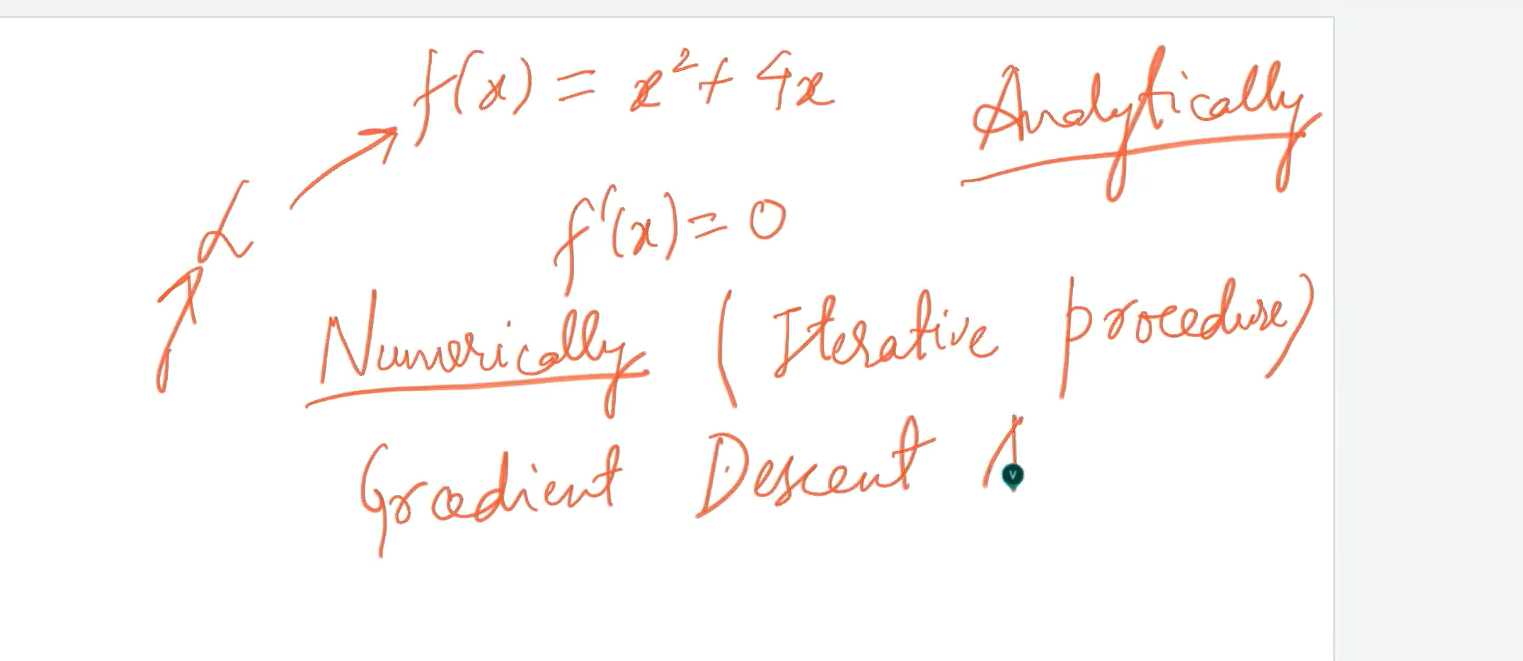 f(x) = x² + 4x Analytically
L
f'(x) = 0
Numerically (Iterative procedure)
Gradient Descent